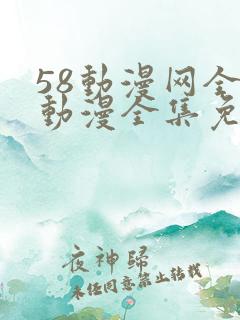 58動漫网全
動漫全集免
夜神歸
未任同意禁止转载